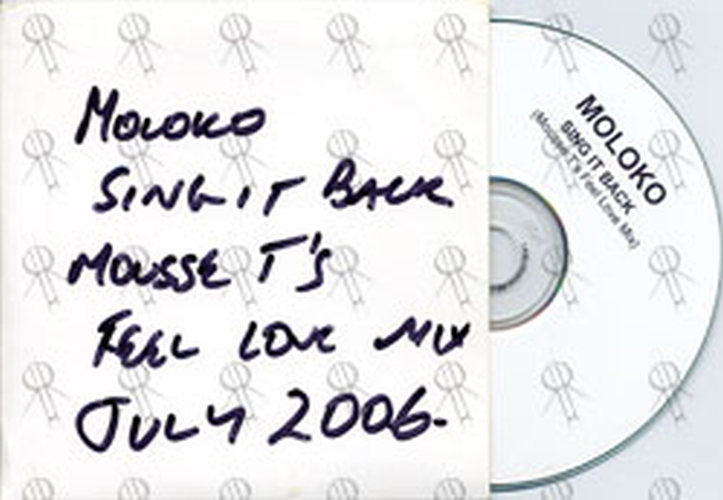 MOLOKO
SING IT BACK
MOUSSE T'S
FEEL LOVE MIX
JULY 2006.
MOLOKO
SING IT BACK
(Mousse T's Feel Love Mix)